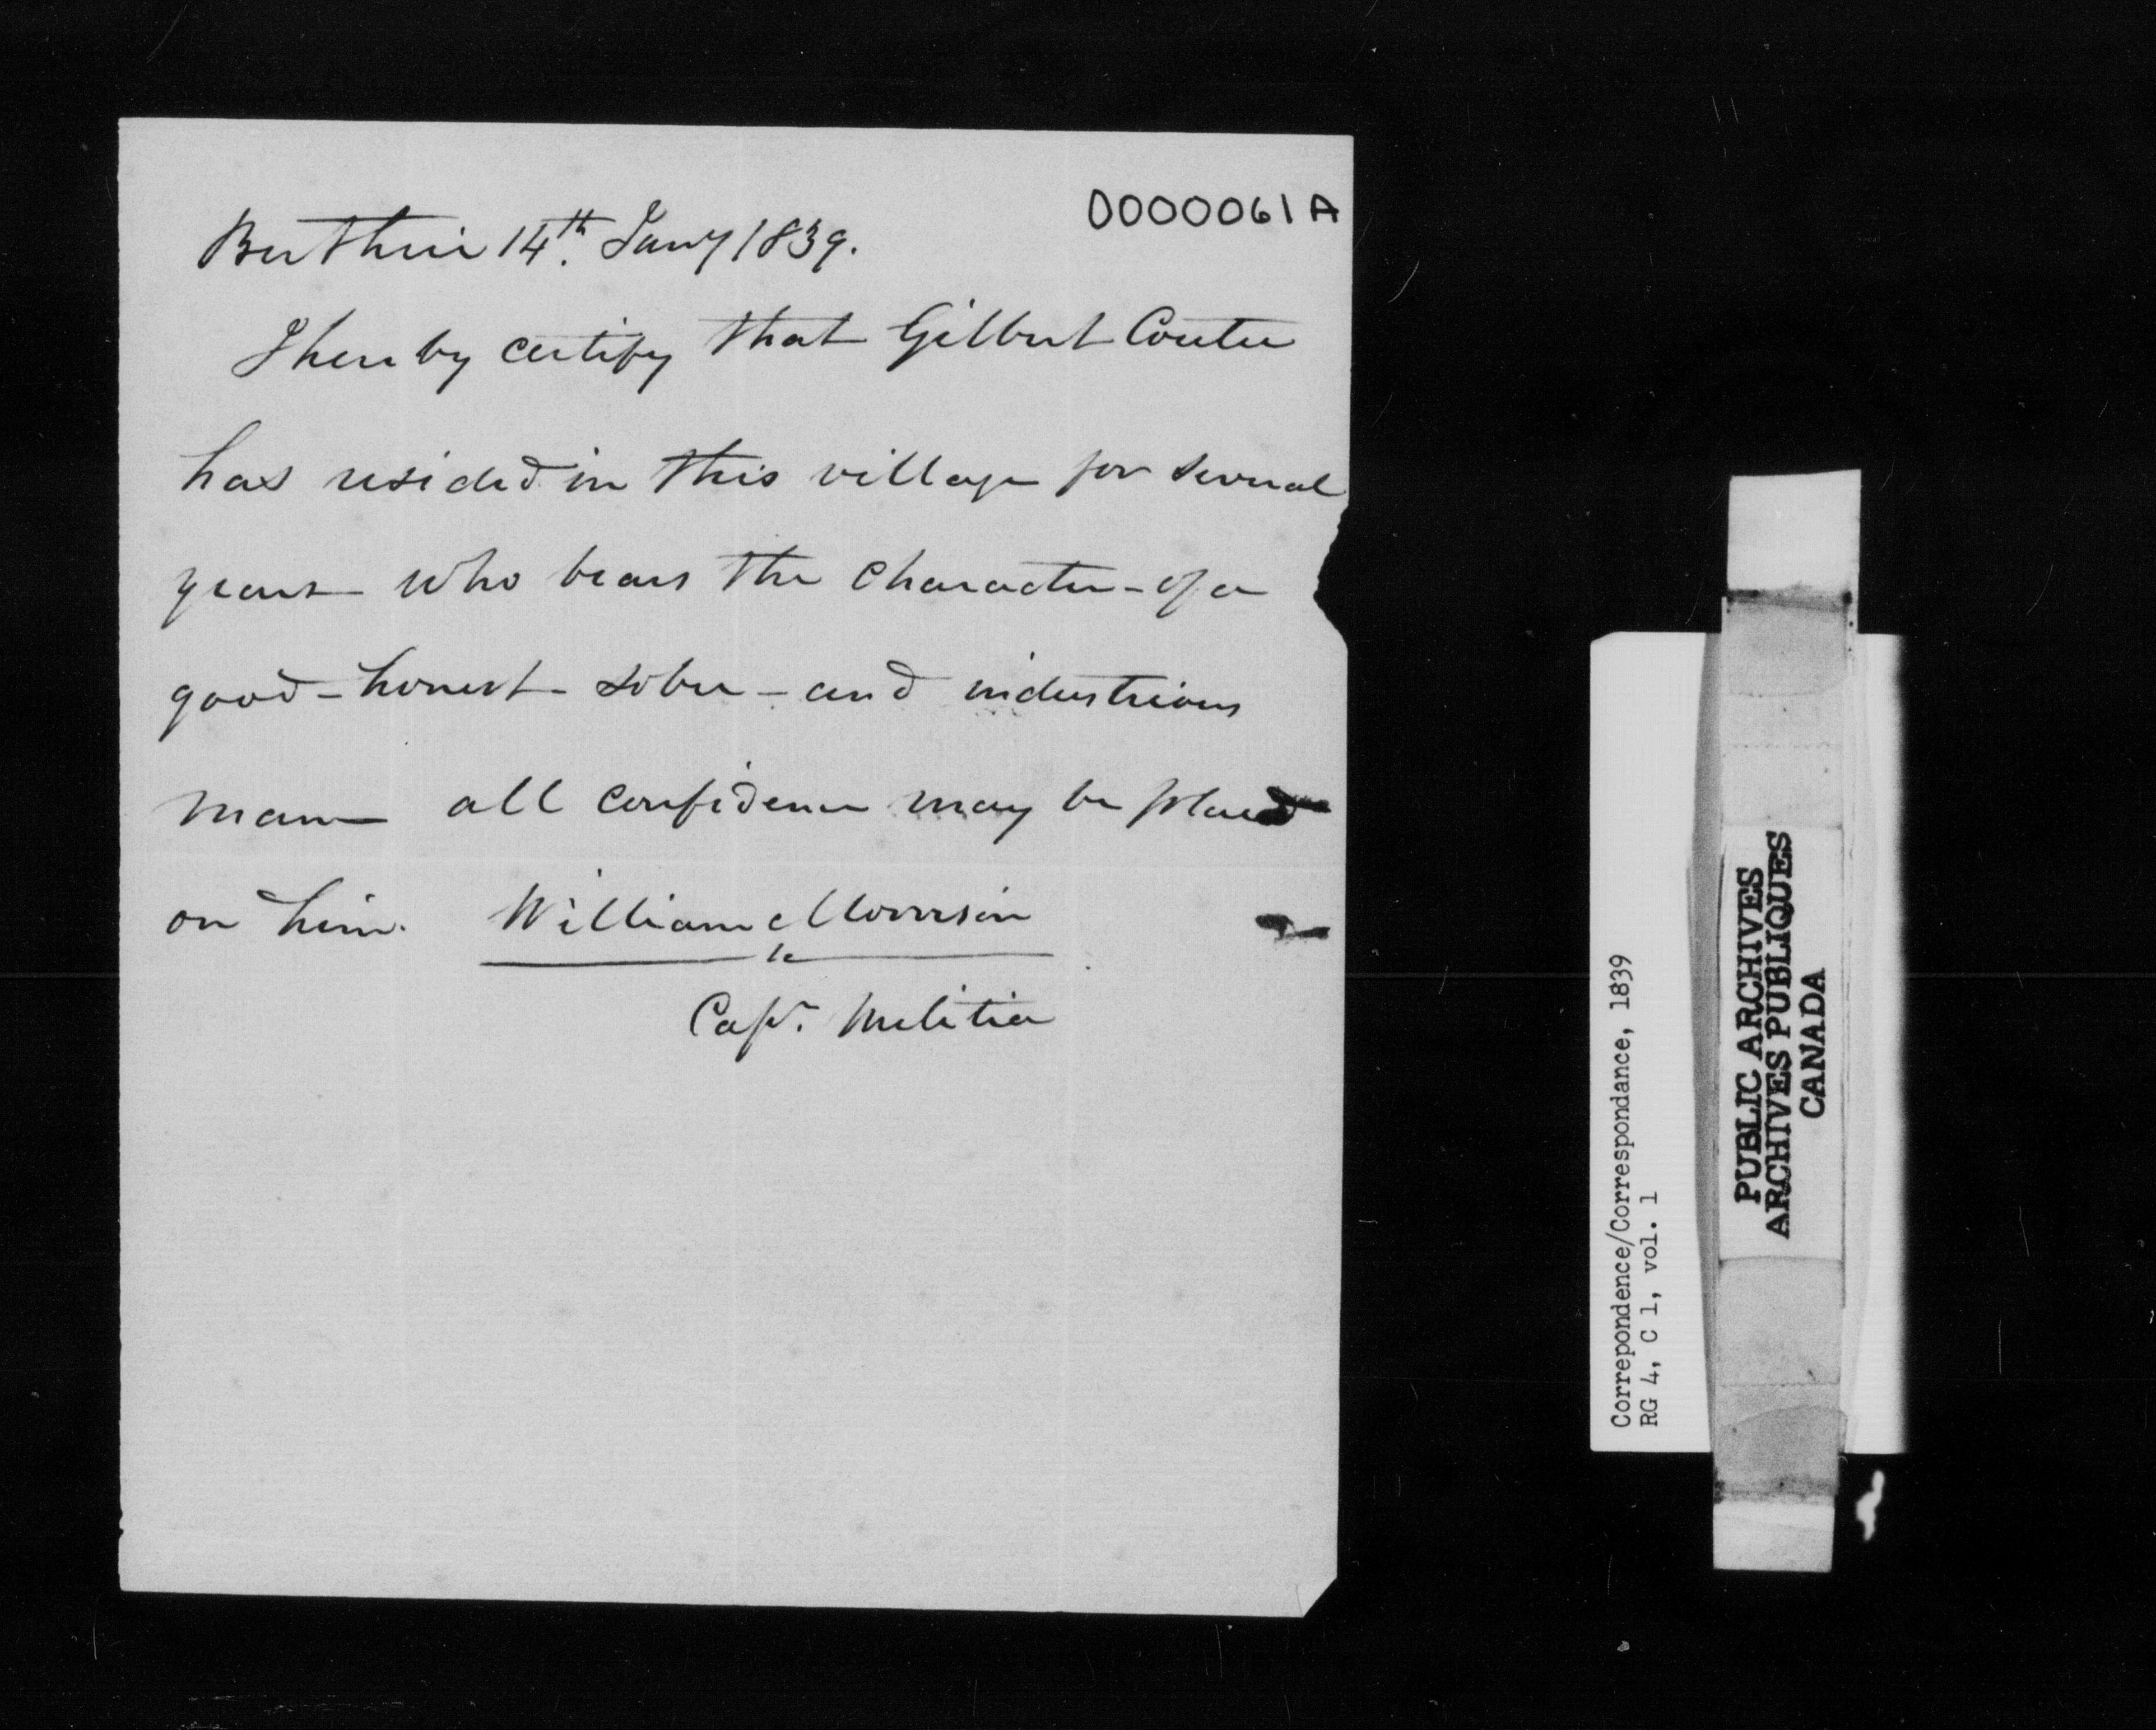 0000061A
Berthier 14th. Jany 1839.
I hereby certify that Gilbert Coutu
has resided in this village for several
years who bears the character of a
good - honest - sober - and industrious
man all confidence may be placed
on him. William Morrison
Capt. Militia
Correpondence/Correspondance, 1839
RG 4, C 1, vol. 1
PUBLIC ARCHIVES
ARCHIVES PUBLIQUES
CANADA